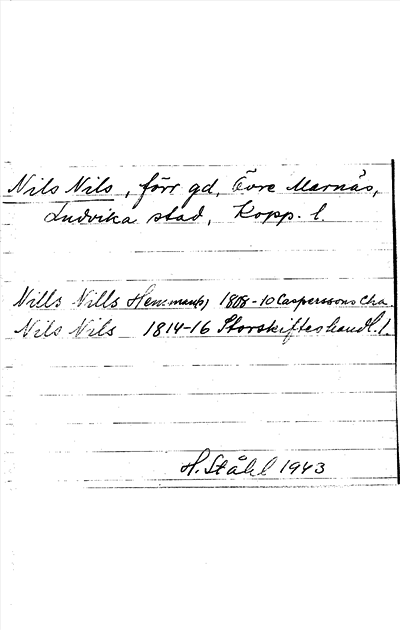 Nils Nils, förr gd, Övre Marnäs,
Ludvika stad, Kopp. l.
Nills Nills Hemman(s) 1808-10 Casperssons Cha.
Nils Nils 1814-16 Storskifteshandl. 1.
H. Ståhl 1943